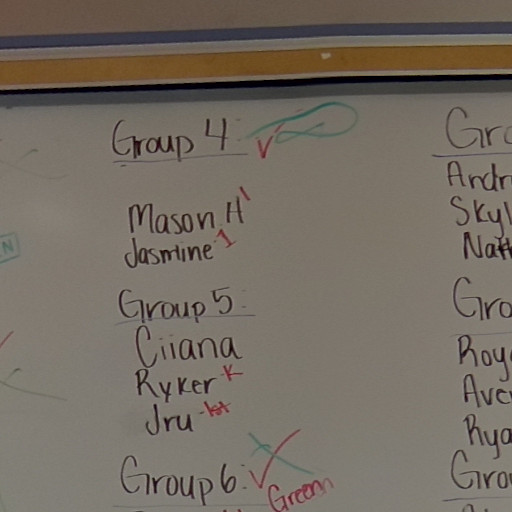 Group 4:
Mason H 1
Jasmine 1
Group 5:
Ciiana
Ryker K
Jru
Group 6:
Green
N
Gro
Andr
Skyl
Nat
Gro
Roy
Ave
Rya
Gro